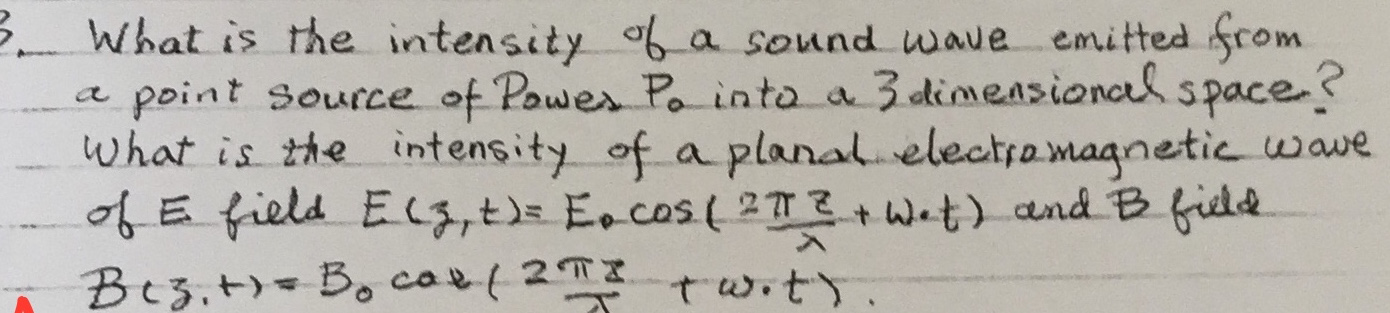 3. What is the intensity of a sound wave emitted from
a point source of Power P₀ into a 3 dimensional space?
What is the intensity of a planal electromagnetic wave
of E field E(z,t)= E₀ cos( 2πz/λ + ω·t) and B field
B(z,t)= B₀ cos( 2πz/λ + ω·t).